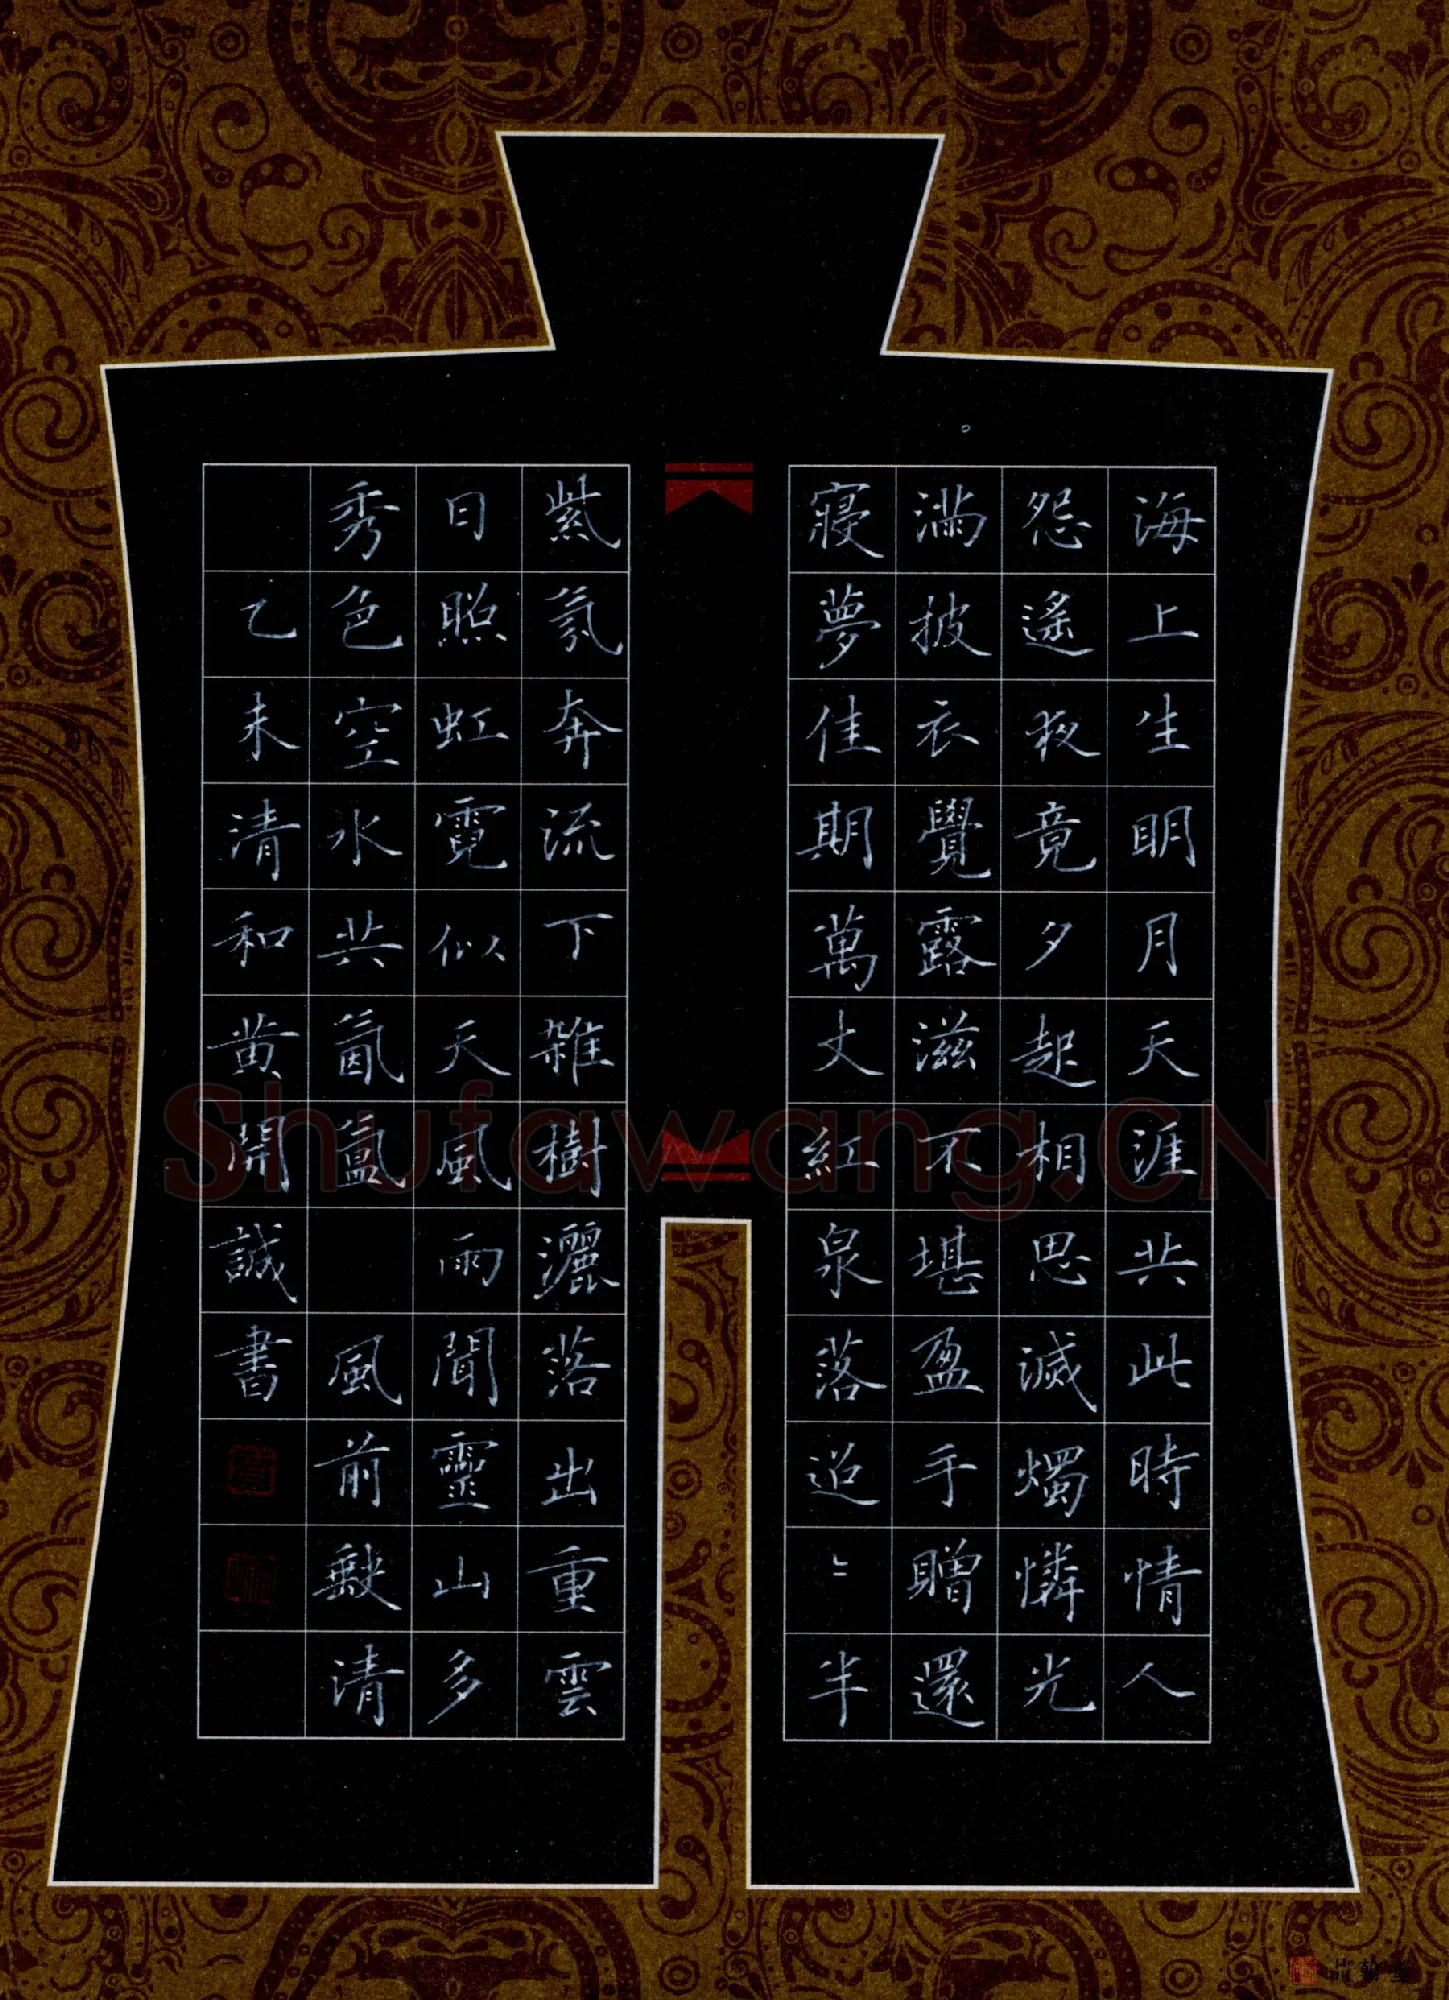 海上生明月天涯共此時情人
怨遙夜竟夕起相思滅燭憐光
滿披衣覺露滋不堪盈手贈還
寢夢佳期萬丈紅泉落迢〻半
紫氛奔流下雜樹灑落出重雲
日照虹霓似天風雨聞靈山多
秀色空水共氤氳 風前數清
乙未清和黃開誠書
Shufawang.CN